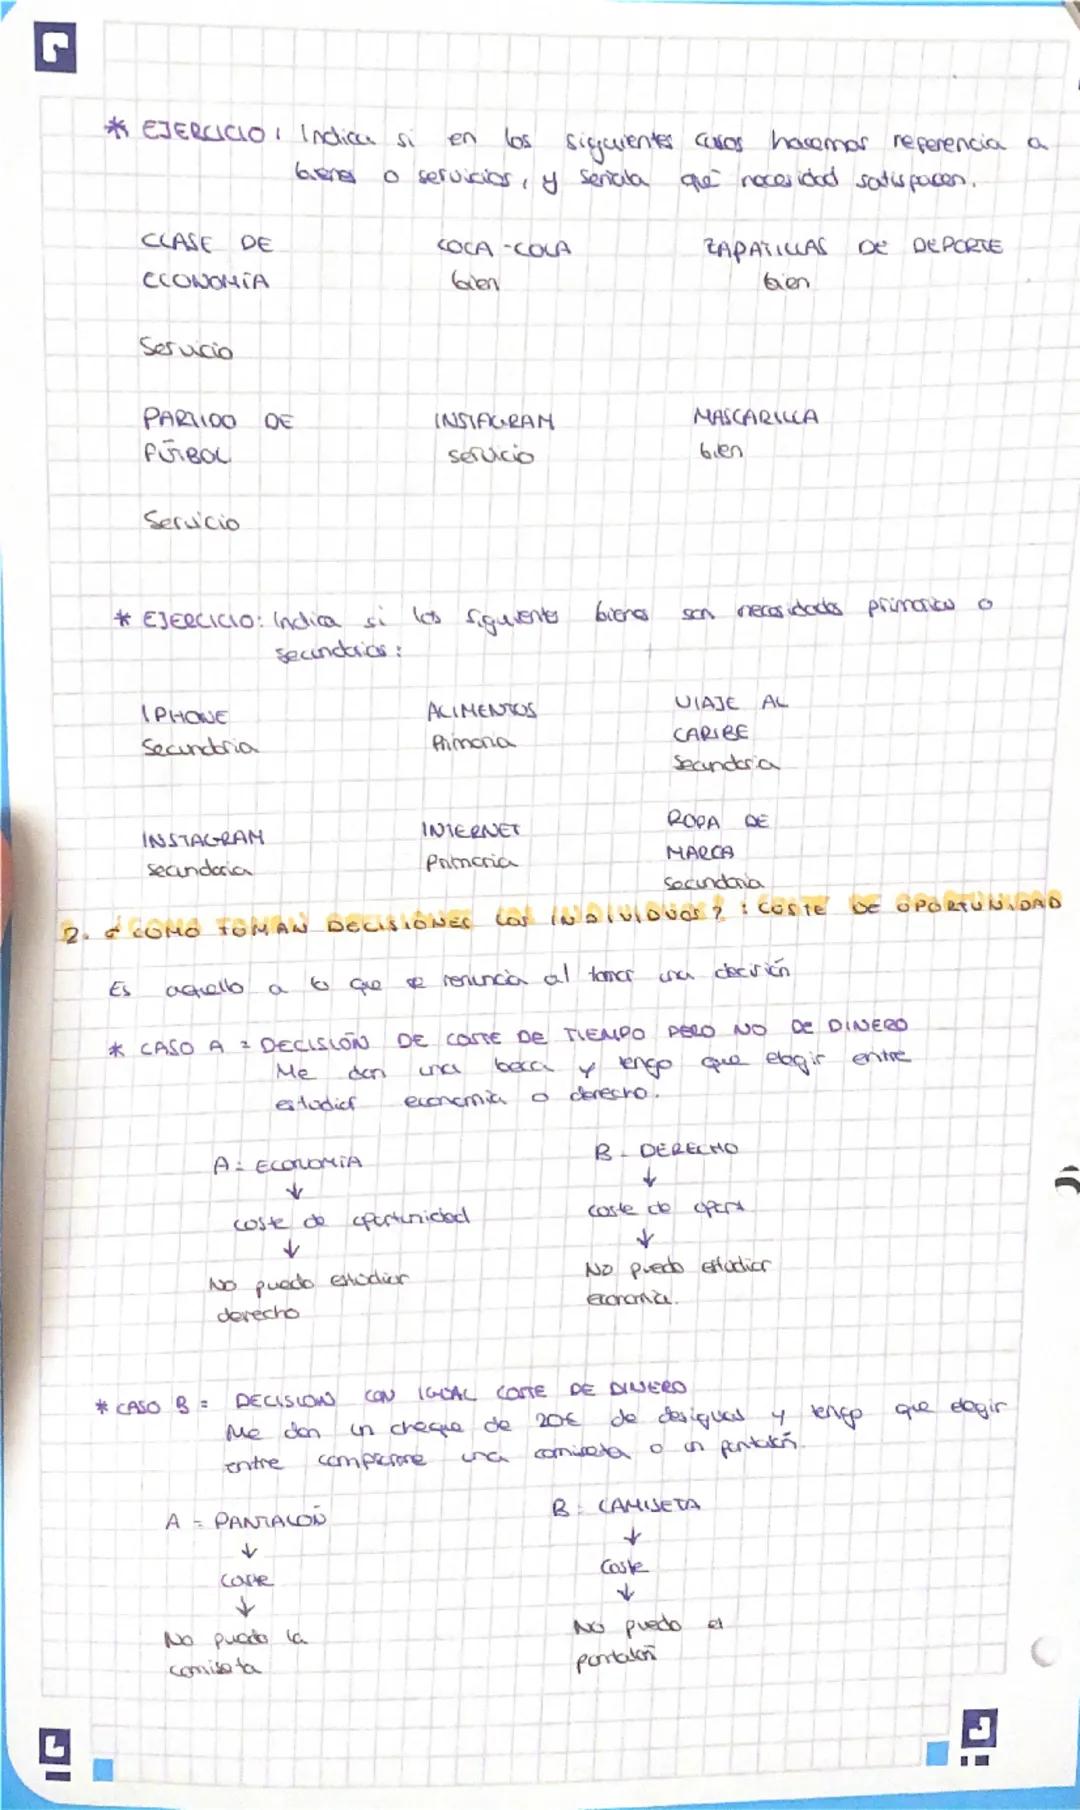 * EJERCICIO: Indica si en los siguientes casos hacemos referencia a
bienes o servicios, y señala qué necesidad satisfacen.
CLASE DE COCA-COLA ZAPATILLAS DE DEPORTE
ECONOMÍA bien bien
Servicio
PARTIDO DE INSTAGRAM MASCARILLA
FÚTBOL servicio bien
Servicio
* EJERCICIO: Indica si los siguientes bienes son necesidades primarias o
secundarias:
IPHONE ALIMENTOS VIAJE AL
Secundaria Primaria CARIBE
Secundaria
INSTAGRAM INTERNET ROPA DE
secundaria Primaria MARCA
Secundaria
2. ¿COMO TOMAN DECISIONES LOS INDIVIDUOS?: COSTE DE OPORTUNIDAD
Es aquello a lo que se renuncia al tomar una decisión
* CASO A = DECISIÓN DE COSTE DE TIEMPO PERO NO DE DINERO
Me dan una beca y tengo que elegir entre
estudiar economia o derecho.
A: ECONOMÍA B - DERECHO
↓ ↓
coste de oportunidad coste de oport
↓ ↓
No puedo estudiar No puedo estudiar
derecho economía.
* CASO B = DECISION CON IGUAL COSTE DE DINERO
Me dan un cheque de 20€ de desigual y tengo que elegir
entre comprarme una camiseta o un pantalón.
A = PANTALÓN B: CAMISETA
↓ ↓
coste Coste
↓ ↓
No puedo la No puedo el
camiseta pantalón